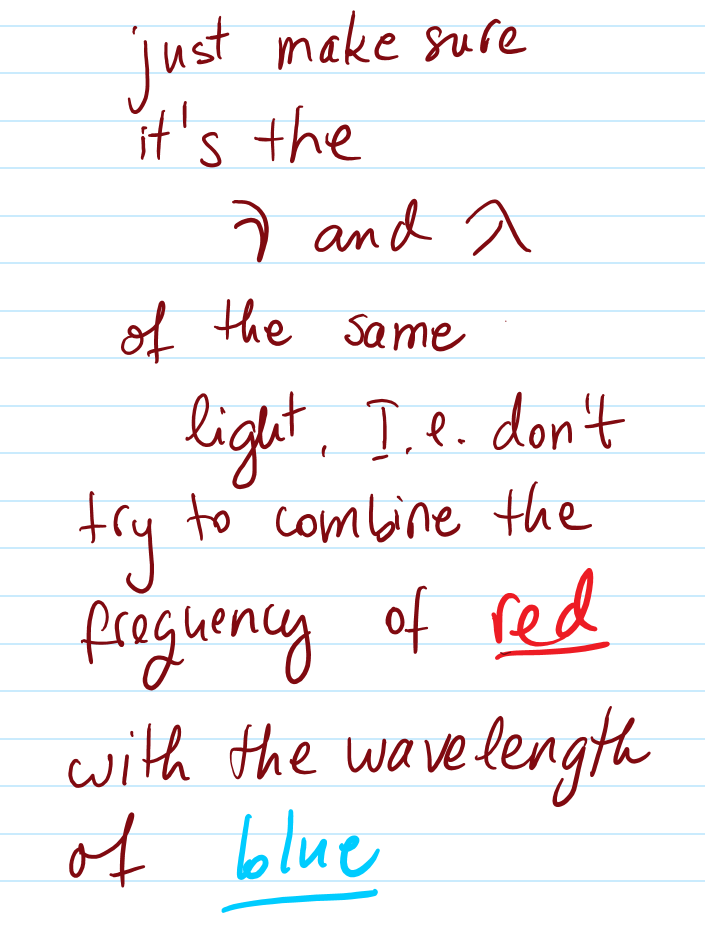 just make sure
it's the
ν and λ
of the same
light. I.e. don't
try to combine the
frequency of red
with the wavelength
of blue